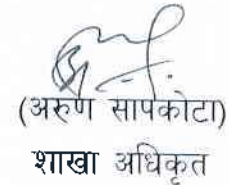 (अरुण सापकोटा)
शाखा अधिकृत